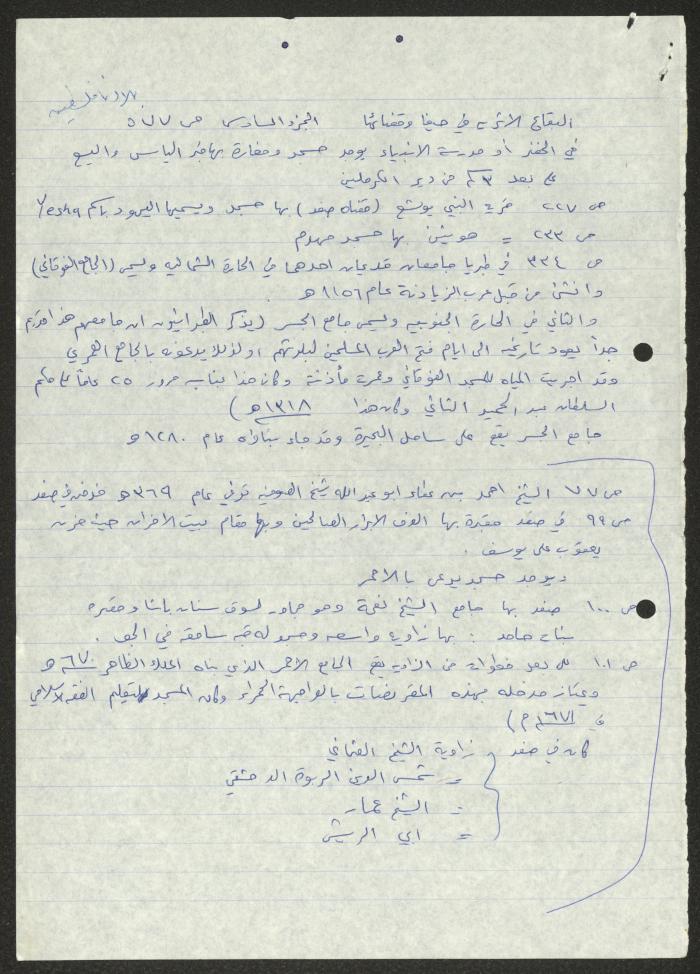 بلادنا فلسطين
البقاع الاثرية في حيفا وقضائها الجزء السادس ص ٥٧٧
في الخضر أو مدرسة الانبياء يوجد مسجد ومغارة بها قبر الياس واليسع
على بعد ٣ كم من دير الكرملين
ص ٢٢٧ قرية النبي يوشع (قضاء صفد) بها مسجد ويسميها اليهود باسم Yesha
ص ٢٣٣ = هونين بها مسجد مهدم
ص ٣٣٤ في طبريا جامعان قديمان احدهما في الحارة الشمالية ويسمى (الجامع الفوقاني)
وانشئ من قبل عرب الزيادنة عام ١١٥٦ هـ
والثاني في الحارة الجنوبية ويسمى جامع الجسر (يذكر الطبرانيون ان جامعهم هذا قديم
جداً يعود تاريخه الى ايام فتح العرب المسلمين لبلدتهم ولذلك يدعونه بالجامع العمري
وقد اجريت المياه للمسجد الفوقاني وعمرت مأذنته وكان هذا بمناسبة مرور ٢٥ عاماً على حكم
السلطان عبد الحميد الثاني وكان هذا ١٣١٨ هـ)
جامع الجسر يقع على ساحل البحيرة وقد جاء بناؤه عام ١٢٨٠ هـ
ص ٧٧ الشيخ احمد بن عطاء ابو عبد الله شيخ الصوفية توفي عام ٣٦٩ هـ في صفد
ص ٩٩ في صفد مقبرة بها الوف الابرار الصالحين وبها مقام بيت الاحزان حيث حزن
يعقوب على يوسف.
ويوجد مسجد يدعى بالاحمر
ص ١٠٠ صفد بها جامع الشيخ نعمة وهو مجاور لسوق سنان باشا ومقبرة
بنات حامد : بها زاوية واسعة ومسجد له قبة سامقة في الجو.
ص ١٠١ على بعد خطوات من الزاوية يقع الجامع الاحمر الذي بناه الملك الظاهر ٦٧٠ هـ
ويمتاز مدخله بهذه المقرنصات بالواجهة الحمراء وكان المسجد لتعليم الفقه الاسلامي
في (١٦٧١ م)
كان في صفد زاوية الشيخ العثماني
= شمس الدين الربوة الدمشقي
= الشيخ عمار
= ابي الريش